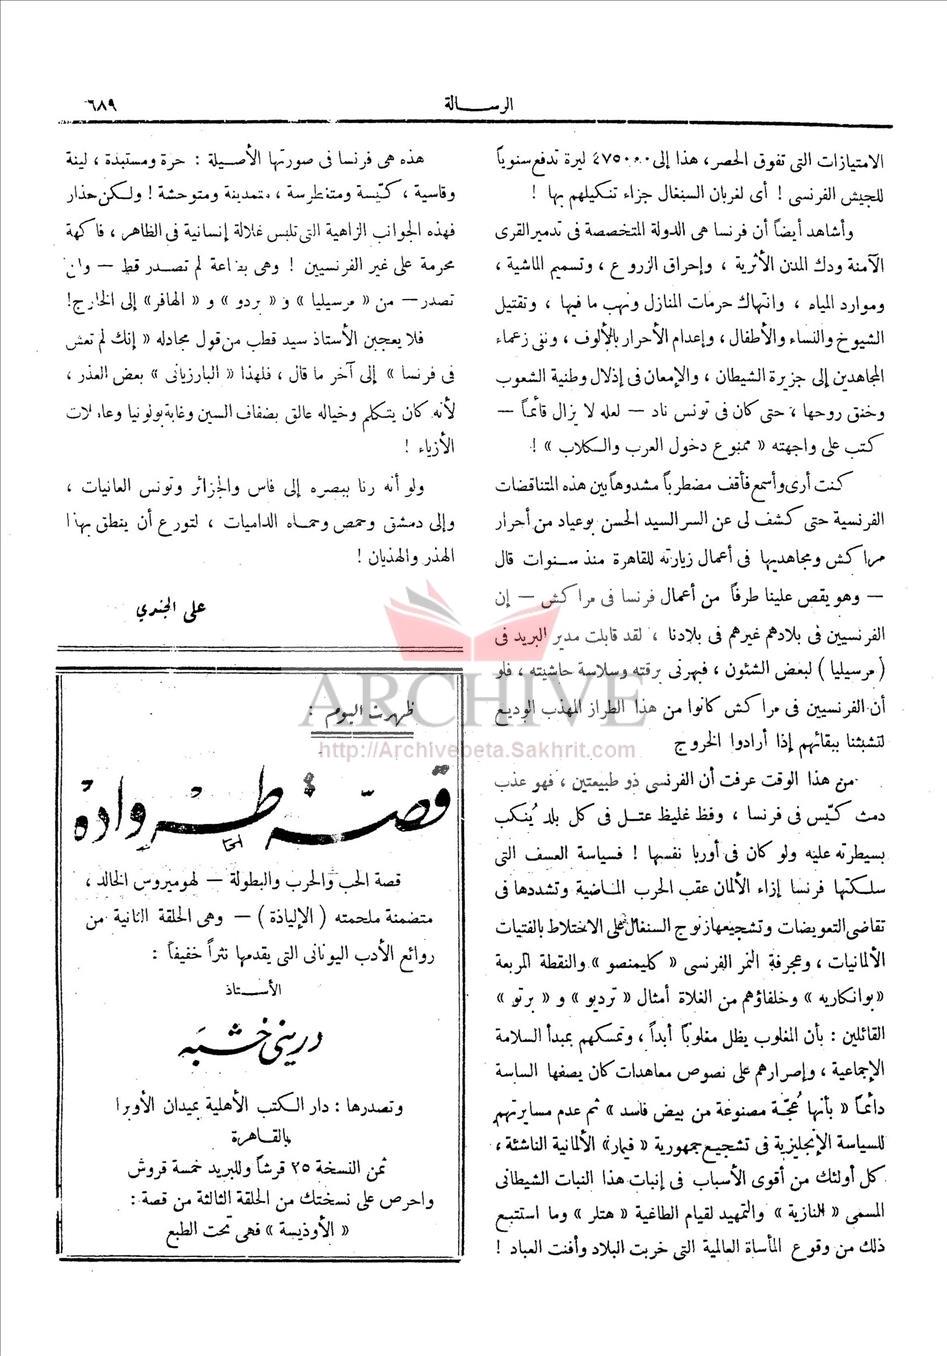 الرسالة
٦٨٩
الامتيازات التى تفوق الحصر، هذا إلى ٤٧٥٠٠٠ ليرة تدفع سنوياً
للجيش الفرنسى ! أى لغربان السنغال جزاء تنكيلهم بها !
وأشاهد أيضاً أن فرنسا هى الدولة المتخصصة فى تدمير القرى
الآمنة ودك المدن الأثرية ، وإحراق الزروع ، وتسميم الماشية ،
وموارد المياه ، وانتهاك حرمات المنازل ونهب ما فيها ، وتقتيل
الشيوخ والنساء والأطفال ، وإعدام الأحرار بالألوف ، ونفى زعماء
المجاهدين إلى جزيرة الشيطان ، والإمعان فى إذلال وطنية الشعوب
وخنق روحها ، حتى كان فى تونس ناد — لعله لا يزال قائماً —
كتب على واجهته « ممنوع دخول العرب والكلاب » !
كنت أرى وأسمع فأقف مضطرباً مشدوهاً بين هذه المتناقضات
الفرنسية حتى كشف لى عن السر السيد الحسن بوعياد من أحرار
مراكش ومجاهديها فى أعمال زيارته للقاهرة منذ سنوات قال
— وهو يقص علينا طرفاً من أعمال فرنسا فى مراكش — إن
الفرنسيين فى بلادهم غيرهم فى بلادنا ، لقد قابلت مدير البريد فى
( مرسيليا ) لبعض الشئون ، فبهرنى برقته وسلاسة حاشيته ، فلو
أن الفرنسيين فى مراكش كانوا من هذا الطراز المهذب الوديع
لتشبثنا ببقائهم إذا أرادوا الخروج
من هذا الوقت عرفت أن الفرنسى ذو طبيعتين ، فهو عذب
دمث كيّس فى فرنسا ، وفظ غليظ عتل فى كل بلد يُنكب
بسيطرته عليه ولو كان فى أوربا نفسها ! فسياسة العسف التى
سلكتها فرنسا إزاء الألمان عقب الحرب الماضية وتشددها فى
تقاضى التعويضات وتشجيعها زنوج السنغال على الاختلاط بالفتيات
الألمانيات ، وعجرفة النمر الفرنسى « كليمنصو » والنقطة المربعة
« بوانكاريه » وخلفاؤهم من الغلاة أمثال « ترديو » و « برتو »
القائلين : بأن المغلوب يظل مغلوباً أبداً ، وتمسكهم بمبدأ السلامة
الإجماعية ، وإصرارهم على نصوص معاهدات كان يصفها الساسة
دائماً « بأنها عُجّة مصنوعة من بيض فاسد » ثم عدم مسايرتهم
للسياسة الإنجليزية فى تشجيع جمهورية « فيمار » الألمانية الناشئة ،
كل أولئك من أقوى الأسباب فى إنبات هذا النبات الشيطانى
المسمى « النازية » والتمهيد لقيام الطاغية « هتلر » وما استتبع
ذلك من وقوع المأساة العالمية التى خربت البلاد وأفنت العباد !
هذه هى فرنسا فى صورتها الأصيلة : حرة ومستبدة ، لينة
وقاسية ، كيّسة ومتغطرسة ، متمدينة ومتوحشة ! ولكن حذار
فهذه الجوانب الزاهية التى تلبس غلالة إنسانية فى الظاهر ، فاكهة
محرمة على غير الفرنسيين ! وهى بضاعة لم تصدر قط — ولن
تصدر — من « مرسيليا » و « بردو » و « الهافر » إلى الخارج !
فلا يعجبن الأستاذ سيد قطب من قول مجادله « إنك لم تعش
فى فرنسا » إلى آخر ما قال ، فلهذا « البارزيانى » بعض العذر ،
لأنه كان يتكلم وخياله عالق بضفاف السين وغابة بولونيا وعارضات
الأزياء !
ولو أنه رنا ببصره إلى فاس والجزائر وتونس العانيات ،
وإلى دمشق وحمص وحماه الداميات ، لتورع أن ينطق بهذا
الهذر والهذيان !
على الجندي
ظهرت اليوم :
قصة طروادة
قصة الحب والحرب والبطولة — لهوميروس الخالد ،
متضمنة ملحمته ( الإلياذة ) — وهى الحلقة الثانية من
روائع الأدب اليونانى التى يقدمها نثراً خفيفاً :
الأستاذ
دريني خشبه
وتصدرها : دار الكتب الأهلية بميدان الأوبرا
بالقاهرة
ثمن النسخة ٢٥ قرشاً وللبريد خمسة قروش
واحرص على نسختك من الحلقة الثالثة من قصة :
« الأوذيسة » فهى تحت الطبع
ARCHIVE
http://Archivebeta.Sakhrit.com